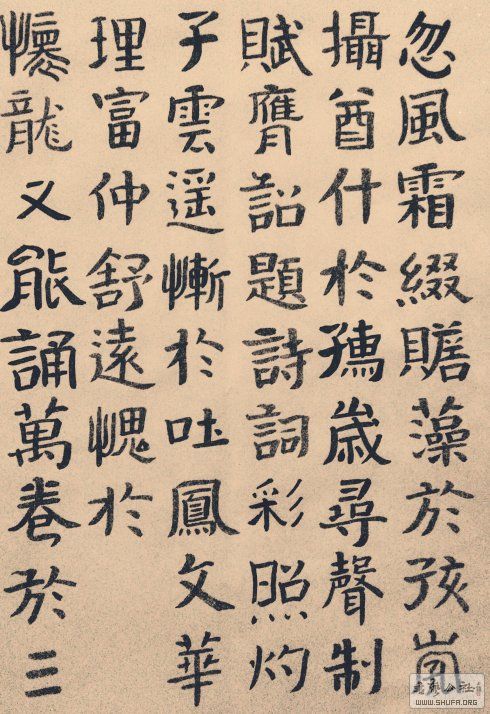 忽風霜綴贍藻於孩
攝酋什於孺歲尋聲制
賦膺詔題詩詞彩照灼
子雲遥慚於吐鳳文華
理富仲舒遠愧於
懷龍又能誦萬卷於三
WWW.SHUFA.ORG